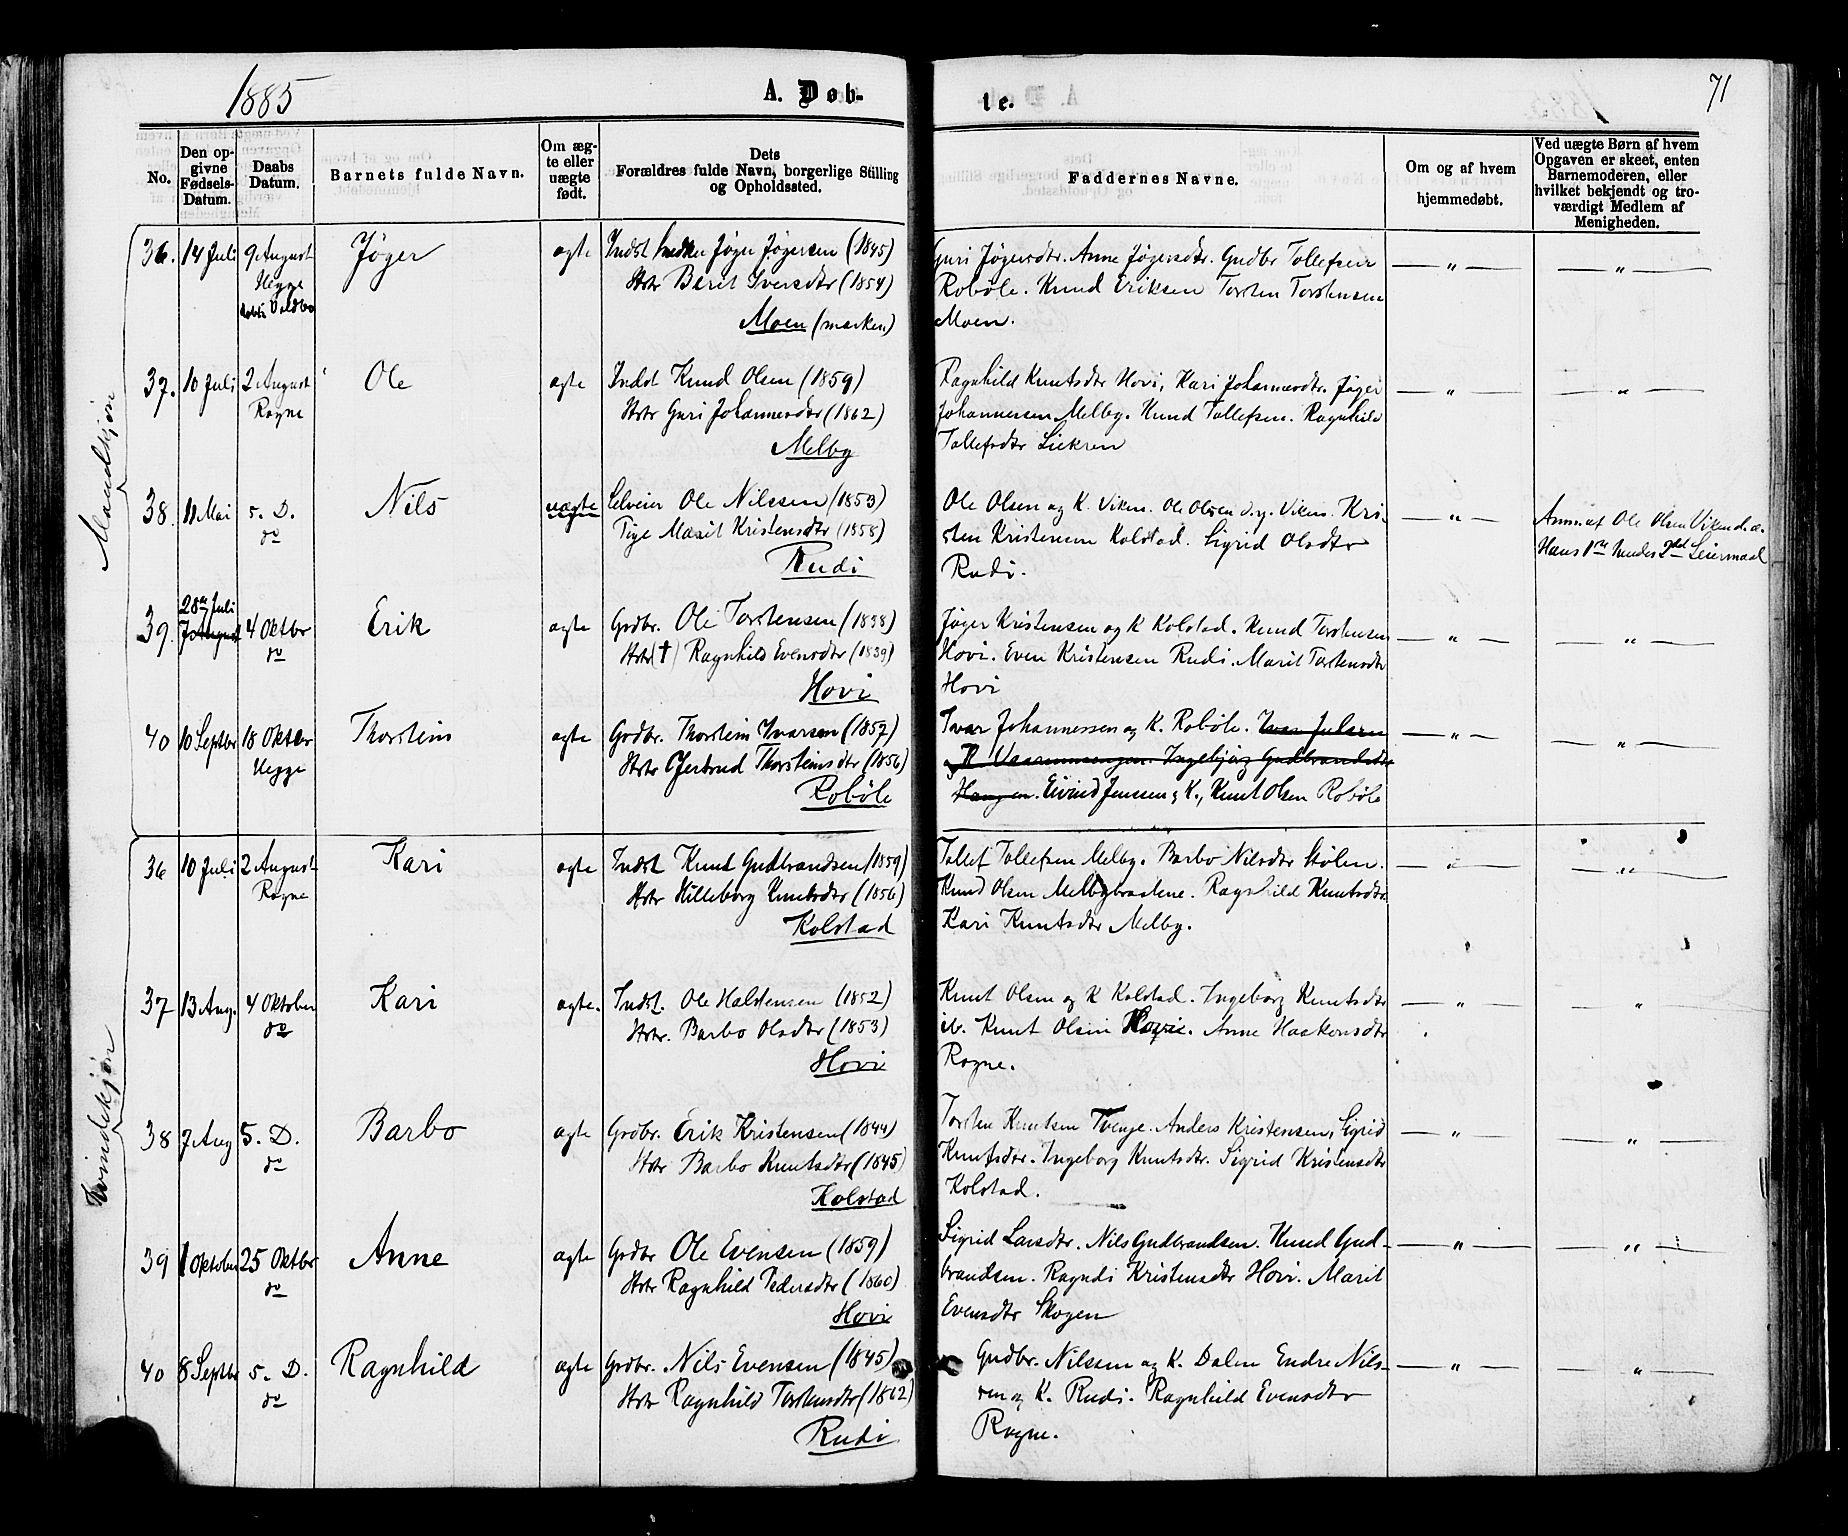 1885
A. Døb-
te.
71
No.
Den op-
givne
Fødsels-
Datum.
Daabs
Datum.
Barnets fulde Navn.
Om æg-
te eller
uægte
født.
Dets
Forældres fulde Navn, borgerlige Stilling
og Opholdssted.
Faddernes Navne.
Om og af hvem
hjemmedøbt.
Ved uægte Børn af hvem
Opgaven er skeet, enten
Barnemoderen, eller
hvilket bekjendt og tro-
værdigt Medlem af
Menigheden.
Mandkjøn
36. 14 Juli 9 August Jøger ægte Indst Snedker Jøger Jøgersen (1845) Guri Jøgersdtr. Anne Jøgersdtr. Gudbr Tollefsen — " — — " —
Hegge Hstr Berit Iversdtr (1854) Robøle. Knud Eriksen Torsten Torstensen
Moen (marken) Moen.
37. 10 Juli 2 August Ole ægte Indst Knud Olsen (1859) Ragnhild Knutsdtr Hovi, Kari Johannesdtr. Jøger — " — — " —
Rogne Hstr Guri Johannesdtr (1862) Johannessen Melby. Knud Tollefsen. Ragnhild
Melby Tollefsdtr
38. 11 Mai 5. D. Nils uægte Selveier Ole Nilssen (1853) Ole Olsen og K. Viken. Ole Olsen d.y. Viken. Kri- — " — Anm. af Ole Olsen Viken
do Pige Marit Kristensdtr (1858) sten Kristensen Kolstad. Sigrid Olsdtr Hans 1ste hendes 2det Leiermaal
Rudi Rudi.
28de Juli
39. 7 August 4 Oktbr Erik ægte Grdbr. Ole Torstensen (1838) Jøger Kristensen og K Kolstad. Knud Torstensen — " — — " —
do Hstr (†) Ragnhild Evensdtr (1839) Hovi. Even Kristensen Rudi. Marit Torstensdtr
Hovi Hovi
40 10 Septbr 18 Oktbr Thorstein ægte Grdbr. Thorstein Ivarsen (1852) Ivar Johannessen og K. Robøle. Ivar Julsen — " — — " —
Hegge Hstr Gjertrud Thorsteinsdtr (1856) og K Ingebjørg Gudbrandsdtr
Robøle Haugen. Eivind Jenssen & K., Knut Olsen Robøle
Kvindekjøn
36 10 Juli 2 August Kari ægte Indst Knut Gudbrandsen (1859) Tollef Tollefsen Melby. Barbo Nilsdtr Stølen. — " — — " —
Rogne Hstr Hilleborg Knutsdtr (1856) Knud Olsen Melbybraatene. Ragnhild Knutsdtr
Kolstad Kari Knutsdtr Melby.
37 13 Aug. 4 Oktober Kari ægte. Indst. Ole Halstensen (1852) Knut Olsen og K Kolstad. Ingeborg Knutsdtr — " — "
do Hstr. Barbo Olsdtr (1853) ib. Knut Olsen Hovi. Anne Haakensdtr
Hovi Rogne.
38 7 Aug 5. D. Barbo ægte Grdbr. Erik Kristensen (1844) Torsten Knutsen Tvenge. Anders Kristensen, Sigrid — " — — " —
do Hstr Barbo Knutsdtr (1845) Knutsdtr. Ingeborg Knutsdtr. Sigrid Kristensdtr
Kolstad Kolstad.
39 1 Oktober 25 Oktbr Anne ægte Grdbr Ole Evensen (1859) Sigrid Larsdtr. Nils Gudbrandsen. Knud Gud- — " — — " —
do Hstr Ragnhild Pedersdtr (1860) brandsen. Ragndi Kristensdtr Hovi. Marit
Hovi Evensdtr Skogen
40 8 Septbr 5. D. Ragnhild ægte Grdbr. Nils Evensen (1845) Gudbr. Nilsen og K. Dalen Endre Nils- — " — — " —
do Hstr Ragnhild Torstensdtr (1862) sen og K. Rudi. Ragnhild Evensdtr
Rudi Rogne.